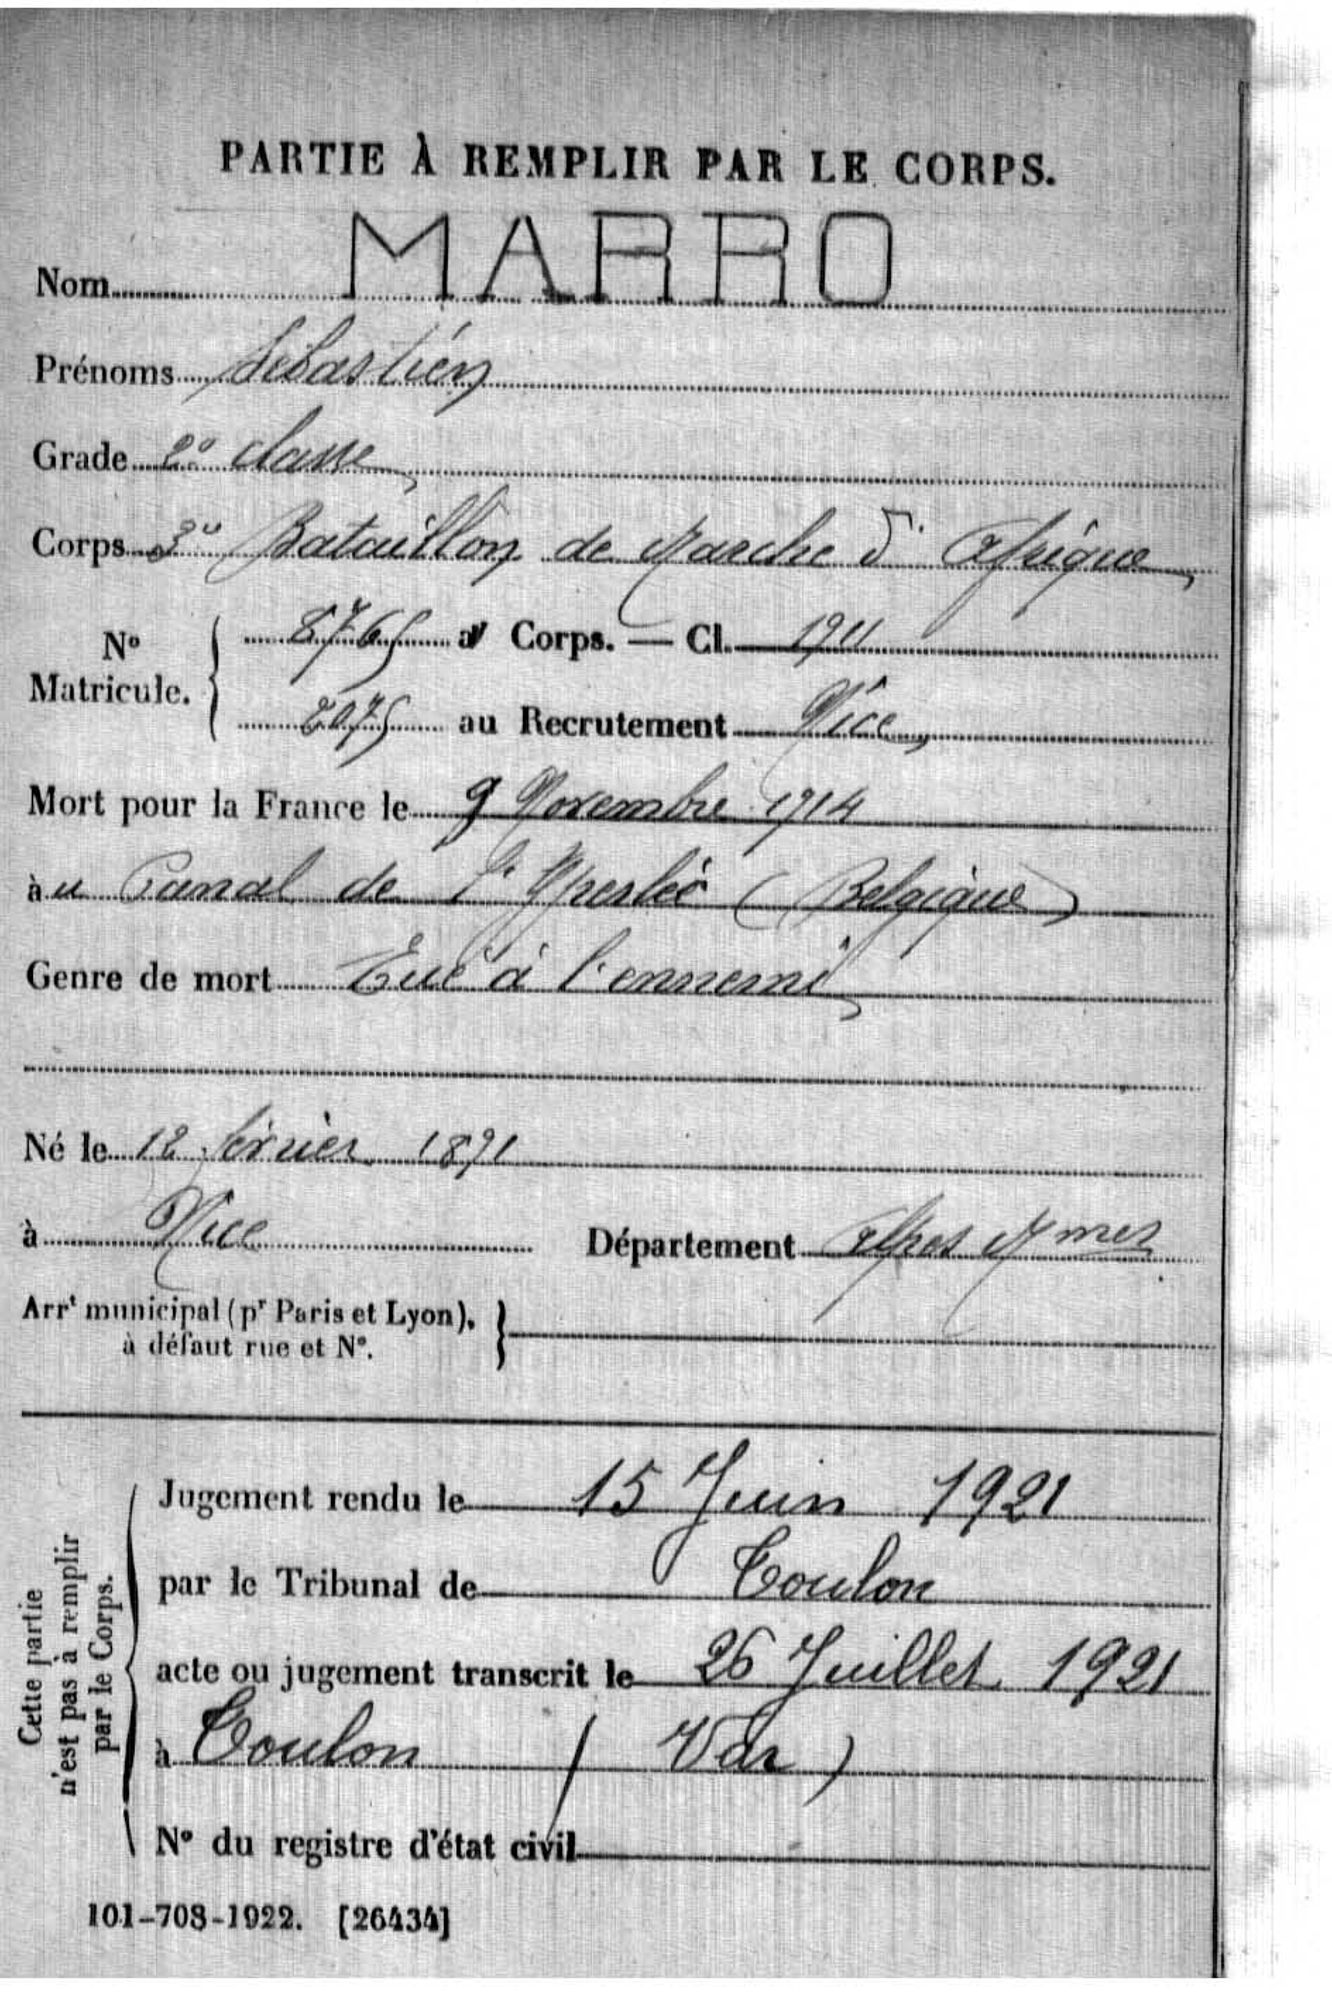 PARTIE À REMPLIR PAR LE CORPS.
Nom MARRO
Prénoms Sébastien
Grade 2e classe
Corps 3e Bataillon de Marche d'Afrique
No Matricule. { 8765 au Corps. — Cl. 1911
2075 au Recrutement Nice
Mort pour la France le 9 Novembre 1914
àu Canal de l'Yperlée (Belgique)
Genre de mort Tué à l'ennemi
Né le 12 février 1891
à Nice Département Alpes Mmes
Arrt municipal (pr Paris et Lyon), }
à défaut rue et No.
Cette partie
n'est pas à remplir
par le Corps.
Jugement rendu le 15 Juin 1921
par le Tribunal de Toulon
acte ou jugement transcrit le 26 Juillet 1921
à Toulon (Var)
No du registre d'état civil
101-708-1922. [26434]